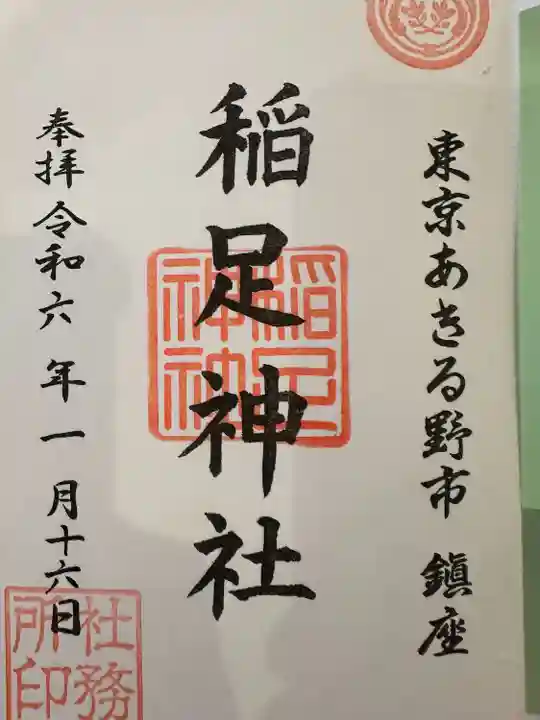 東京あきる野市 鎮座
稲足神社
稲足
神社
奉拝 令和六年一月十六日
社務
所印